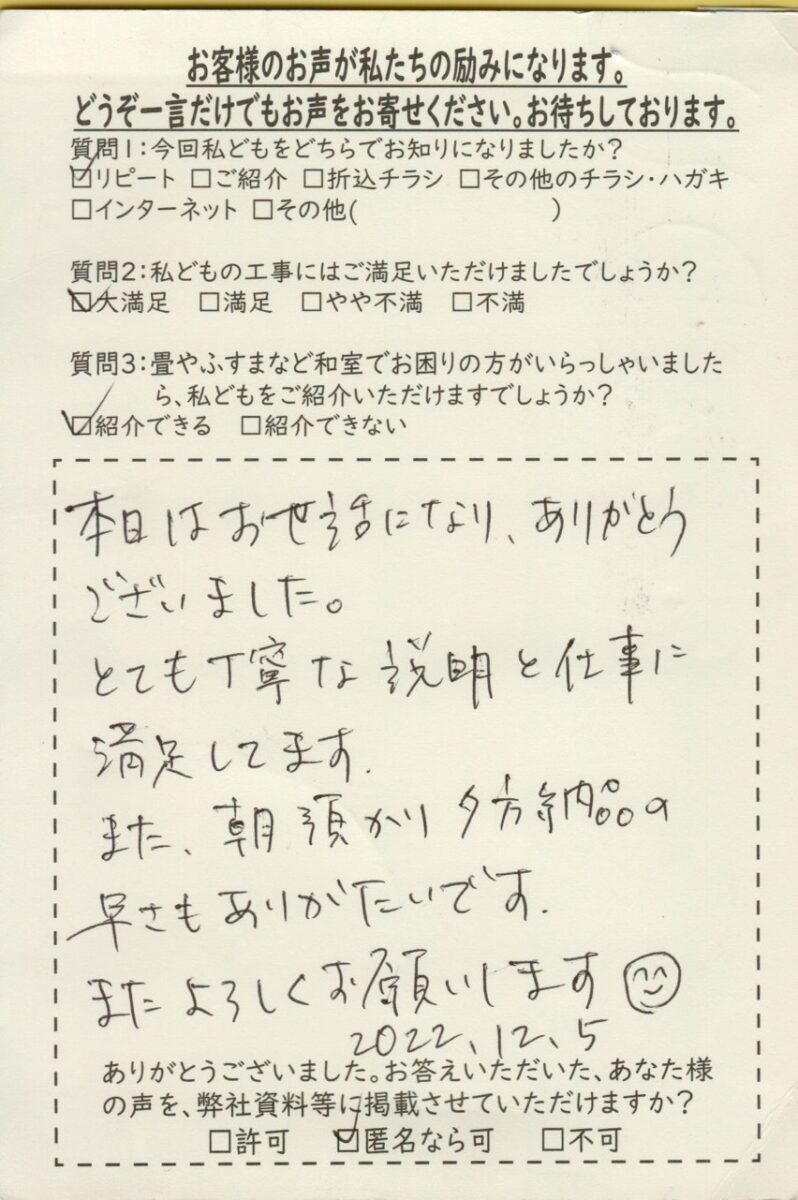 お客様のお声が私たちの励みになります。
どうぞ一言だけでもお声をお寄せください。お待ちしております。
質問1:今回私どもをどちらでお知りになりましたか?
☑リピート □ご紹介 □折込チラシ □その他のチラシ・ハガキ
□インターネット □その他( )
質問2:私どもの工事にはご満足いただけましたでしょうか?
☑大満足 □満足 □やや不満 □不満
質問3:畳やふすまなど和室でお困りの方がいらっしゃいました
ら、私どもをご紹介いただけますでしょうか?
☑紹介できる □紹介できない
本日はお世話になり、ありがとう
ございました。
とても丁寧な説明と仕事に
満足してます.
また、朝預かり夕方納品の
早さもありがたいです.
またよろしくお願いします
2022.12.5
ありがとうございました。お答えいただいた、あなた様
の声を、弊社資料等に掲載させていただけますか?
□許可 ☑匿名なら可 □不可